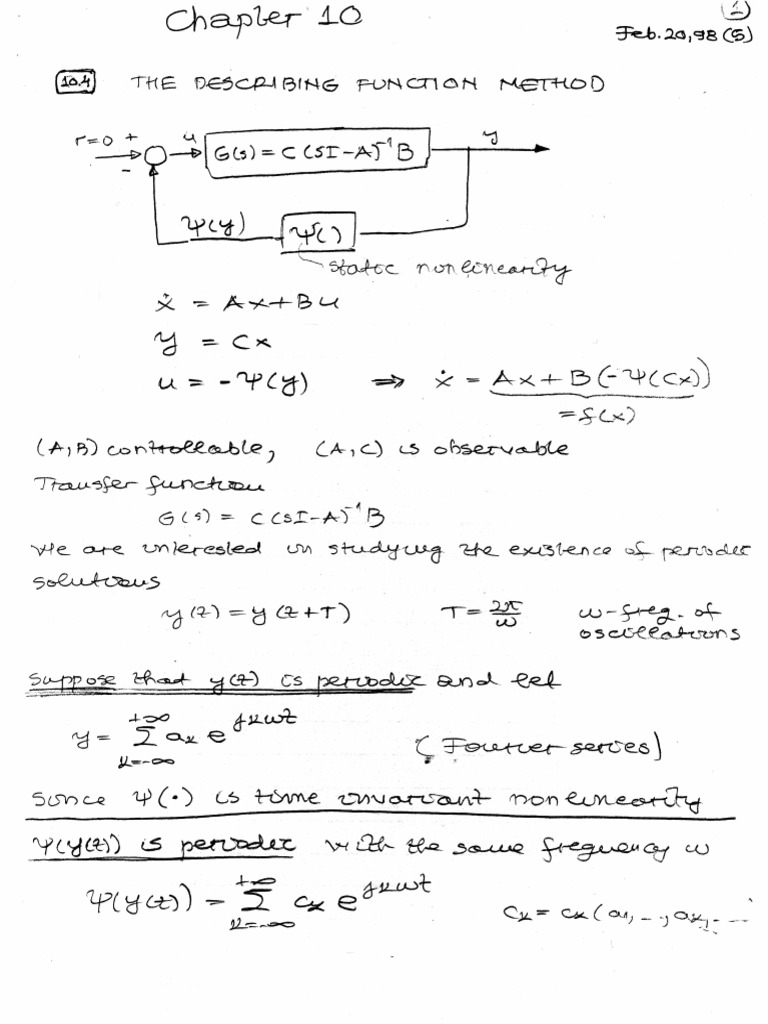 Chapter 10
(1)
Feb. 20, 98 (5)
10.4 THE DESCRIBING FUNCTION METHOD
r=0 + u G(s) = C(sI-A)⁻¹B y
-
Ψ(y) Ψ()
static nonlinearity
ẋ = Ax+Bu
y = Cx
u = -Ψ(y) ⇒ ẋ = Ax+B(-Ψ(Cx))
=f(x)
(A,B) controllable, (A,C) is observable
Transfer function
G(s) = C(sI-A)⁻¹B
We are interested in studying the existence of periodic
solutions
y(t) = y(t+T) T = 2π/ω ω-freq. of
oscillations
Suppose that y(t) is periodic and let
y = Σ_{k=-∞}^{+∞} a_k e^{jkωt} (Fourier series)
Since Ψ(·) is time invariant nonlinearity
Ψ(y(t)) is periodic with the same frequency ω
Ψ(y(t)) = Σ_{k=-∞}^{+∞} c_k e^{jkωt} c_k = c_k(a_1, -.., a_k, ....